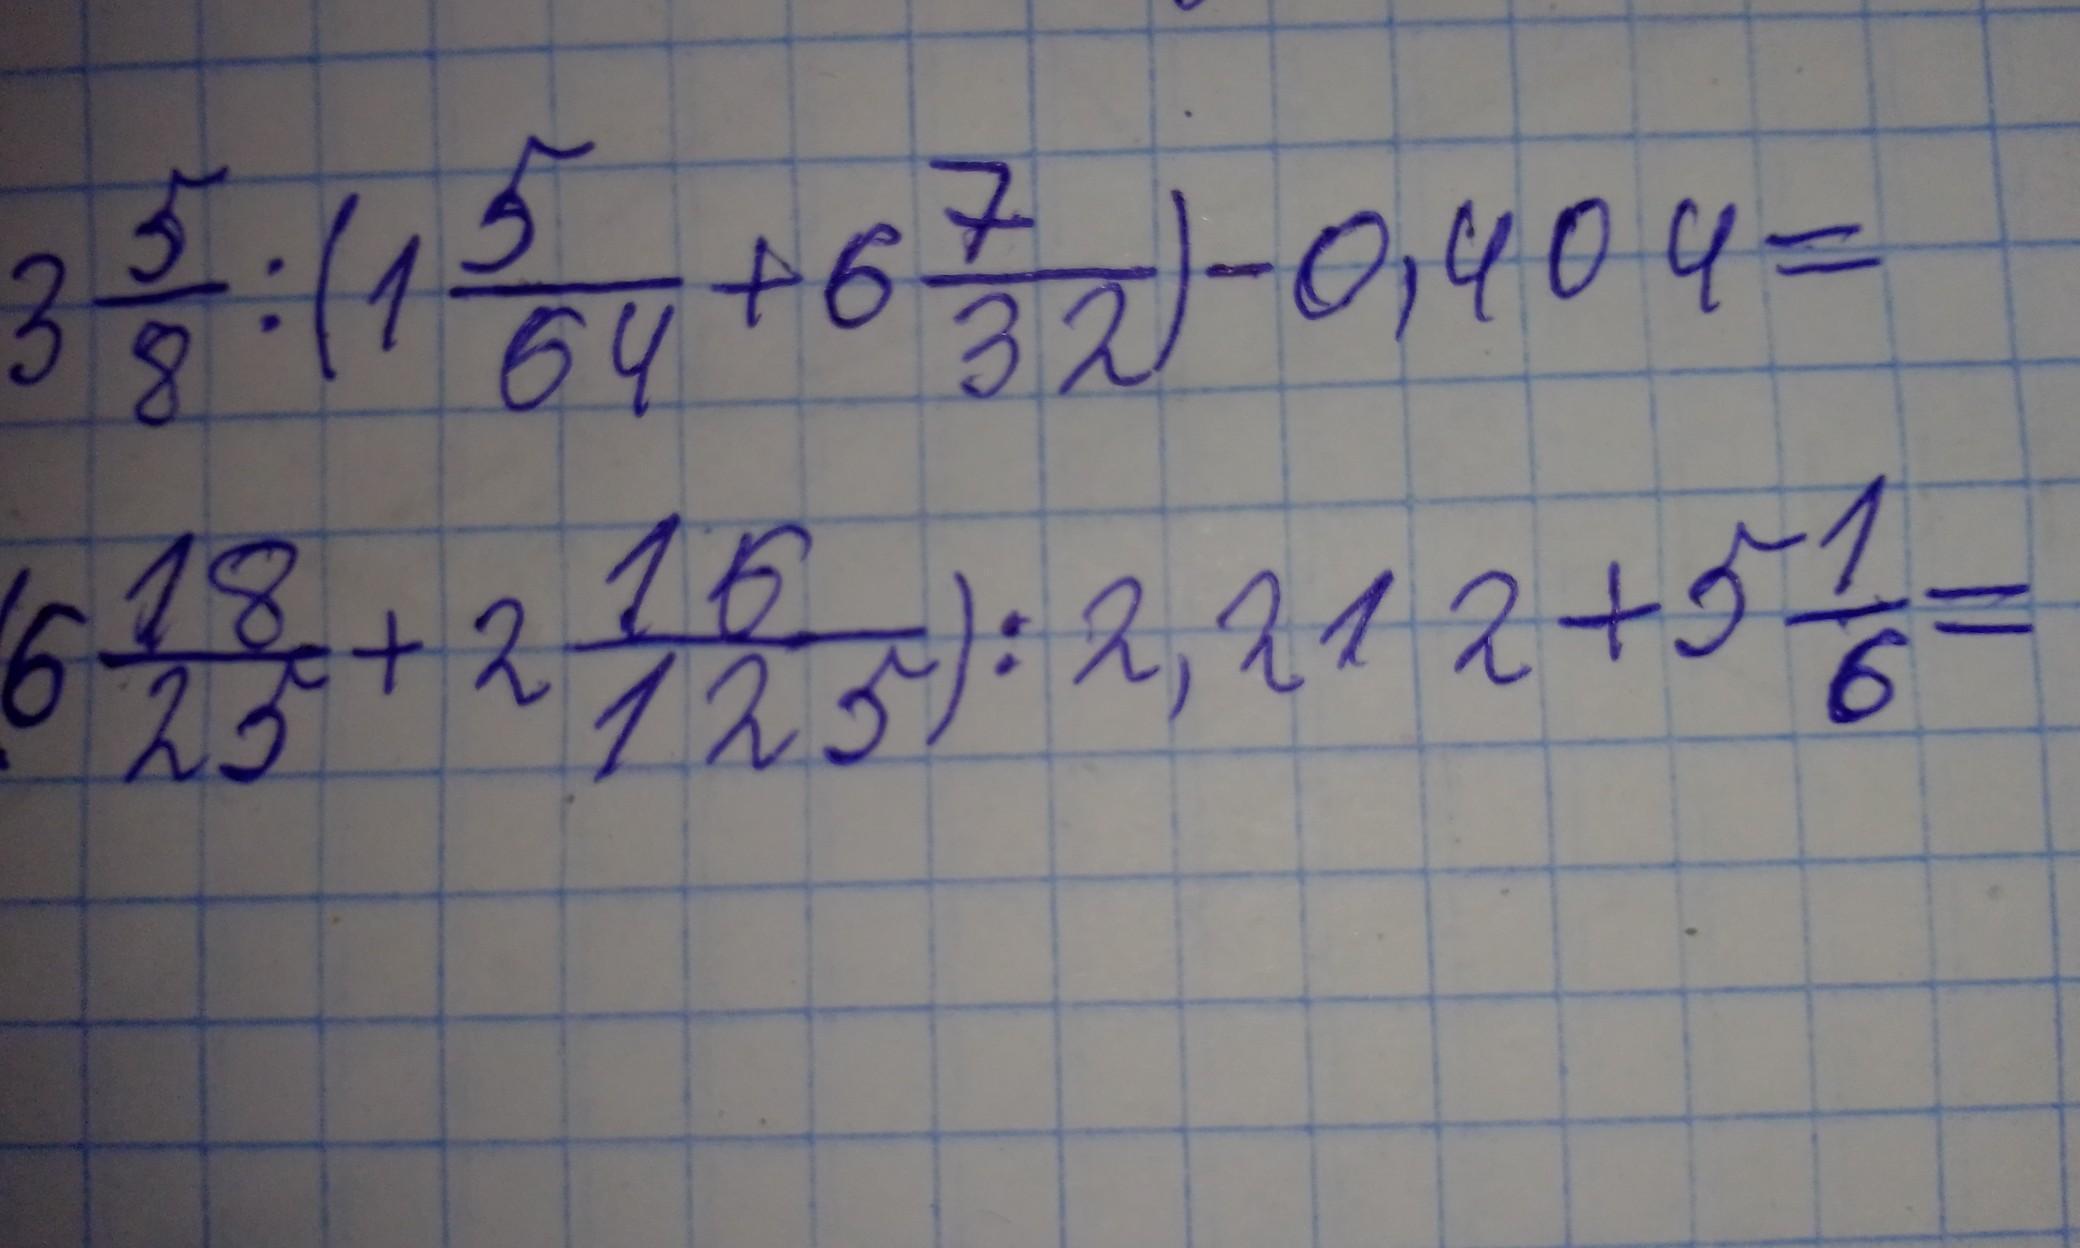 3 5/8 : (1 5/64 + 6 7/32) - 0,404 =
(6 18/25 + 2 16/125) : 2,212 + 5 1/6 =